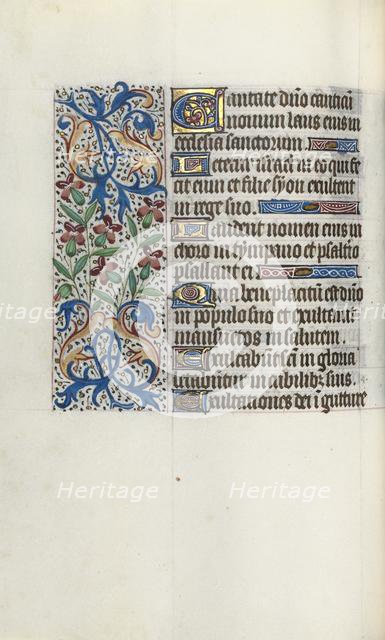 Cantate dn̄o canticū
nouum laus eius in
ecclesia sanctorum.
Letetur israel in eo qui fe
cit eum et filie syon exultent
in rege suo.
Laudent nomen eius in
choro in tympano et psaltio
psallant ei.
Quia beneplacitū est dn̄o
in populo suo et exaltauit
mansuetos in salutem.
Exultabūt sc̄i in gloria
letabūtur in cubilibꝫ suis.
Exultationes dei ī gutture
Heritage
Heritage
Heritage
Heritage